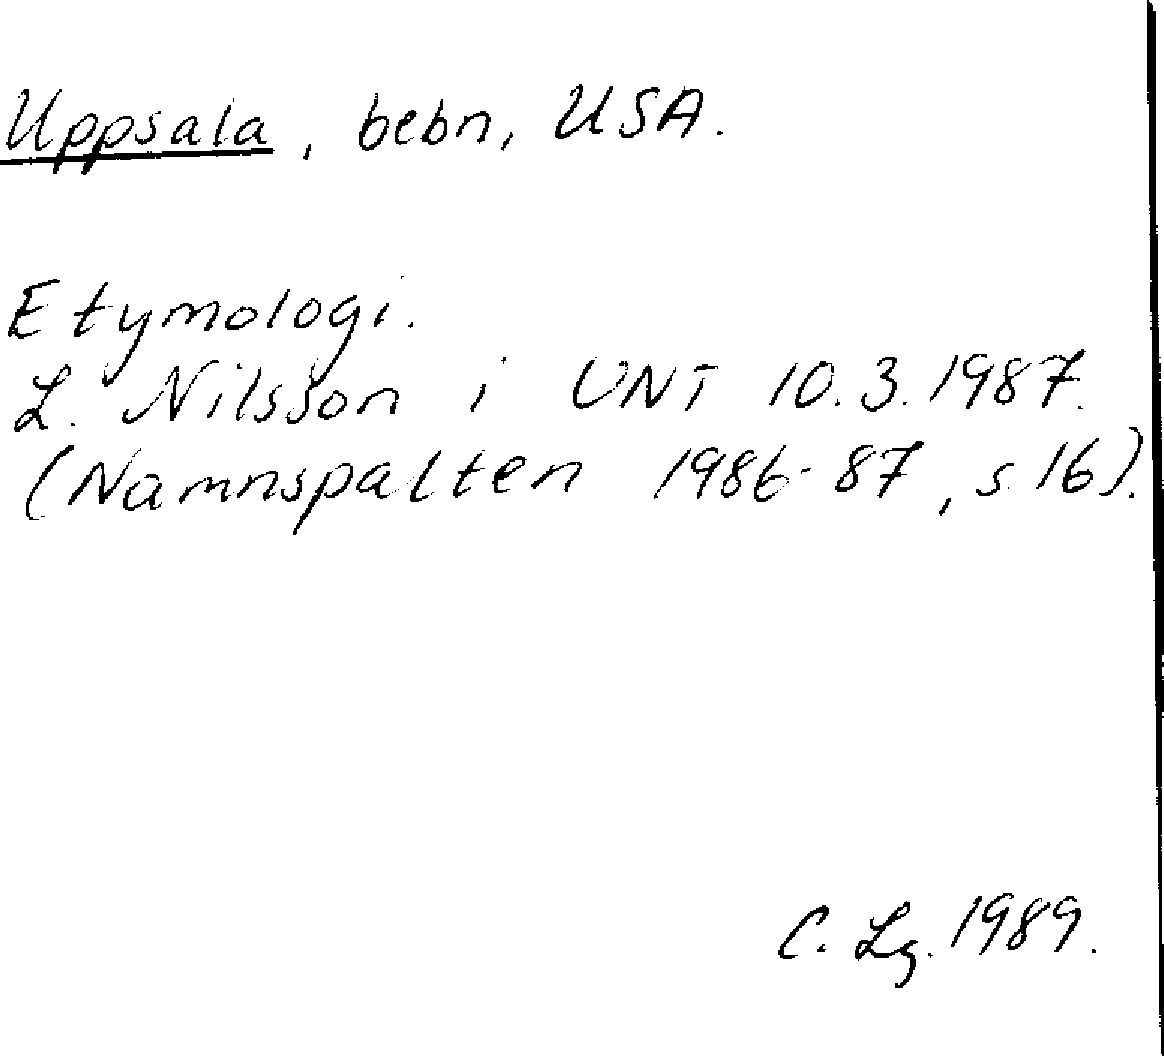 Uppsala, bebn, USA.
Etymologi.
L. Nilsson i UNT 10.3.1987.
(Namnspalten 1986-87, s 16).
C. Lg. 1989.